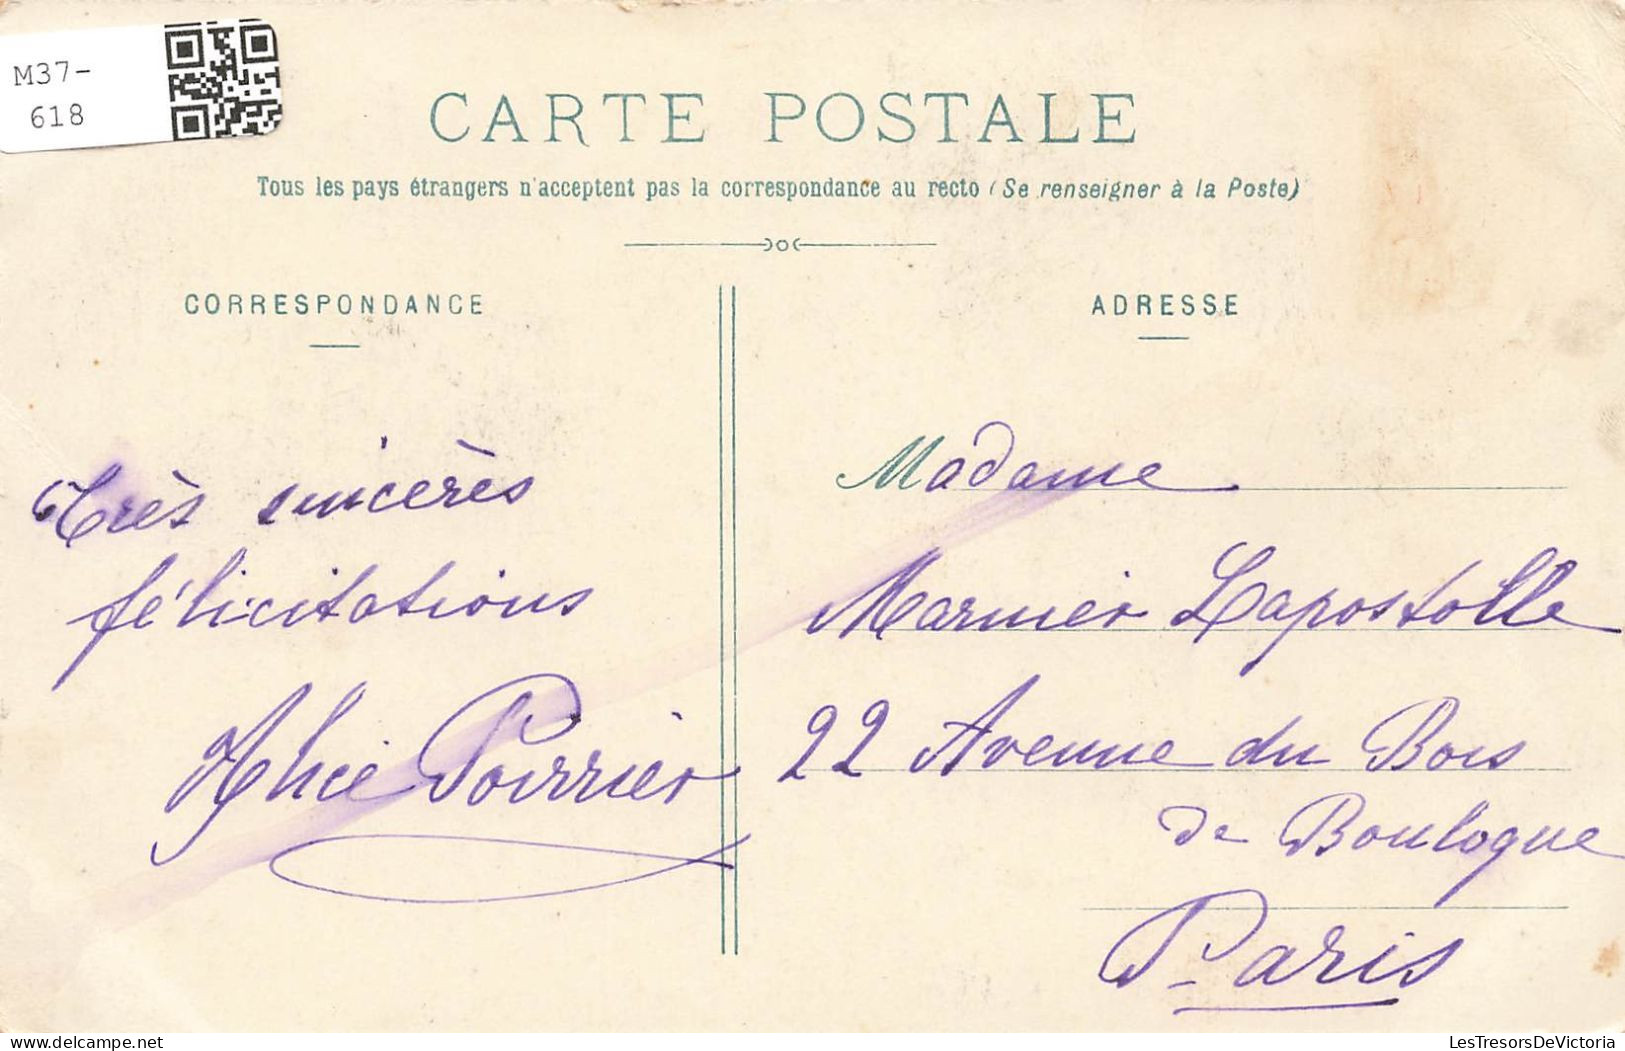 M37-
618
CARTE POSTALE
Tous les pays étrangers n'acceptent pas la correspondance au recto (Se renseigner à la Poste)
CORRESPONDANCE
Très sincères
félicitations
Alice Poirrier
ADRESSE
Madame
Marnier Lapostolle
22 Avenue du Bois
de Boulogne
Paris
LesTresorsDeVictoria
delcampe.net